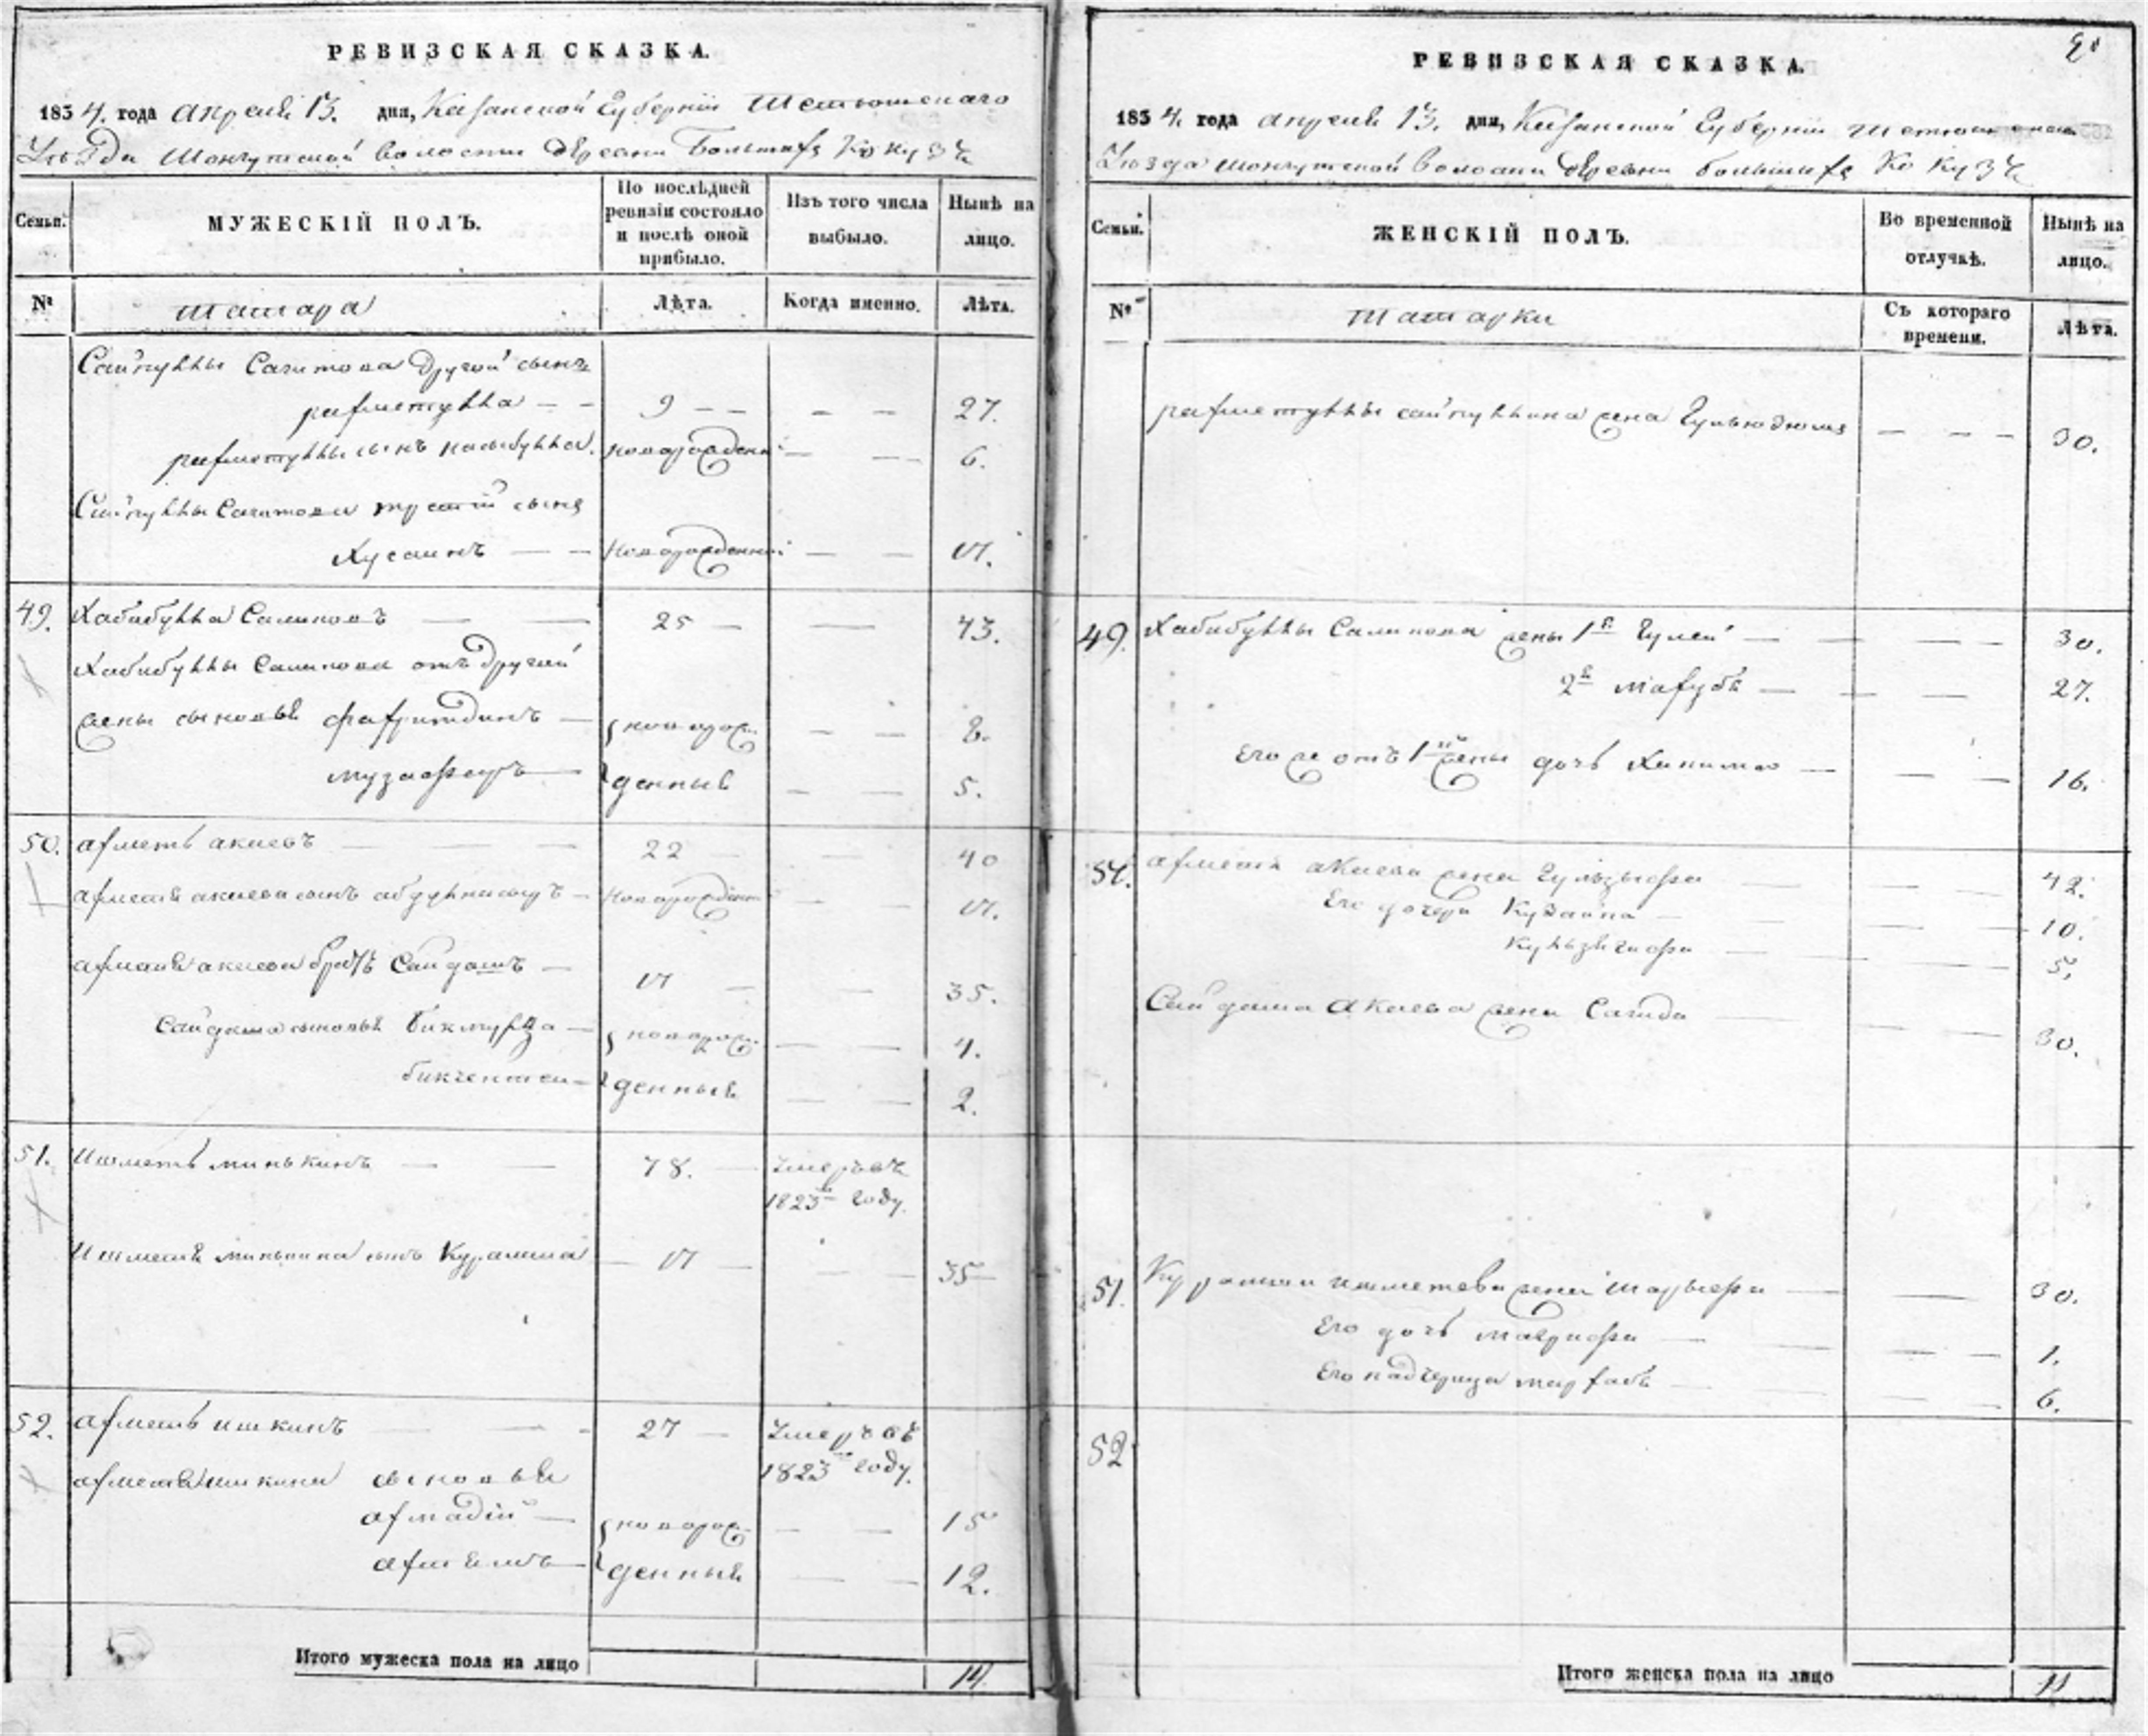 РЕВИЗСКАЯ СКАЗКА.
1834. года апреля 13. дня, Казанской Губернии Тетюшскаго
Уѣзда Шонгутской волости деревни Большихъ Кокузъ
Семьи.
МУЖЕСКІЙ ПОЛЪ.
По послѣдней ревизіи состояло и послѣ оной прибыло.
Изъ того числа выбыло.
Нынѣ на лицо.
№
татара
Лѣта.
Когда именно.
Лѣта.
Сайпуллы Сагитова другой сынъ
рахметулла - - 9 - - - - 27.
рахметуллы сынъ новорожденный - - 6.
Сайпуллы Сагитова третій сынъ
Хусаинъ - - Новорожденный - - 17.
49. Хабибулла Салиховъ 25 - - 43.
Хабибуллы Салихова отъ другой
жены сыновья фахритдинъ - новорож - - 8.
музафаръ - денныя - - 5.
50. ахметь акаевъ 22 - 40
ахметя акаева сынъ - Новорожден - - 17.
ахметя акаева братъ Сайдашъ - 17 - - 35.
Сайдаша сыновья бикмурза - новорож - - 4.
бикчентеи - денныя - - 2.
51. Ишметь минькинъ - - 78. - умеръ въ
1823м году.
Ишметя минькина сынъ Курамша - 17 - - - 35
52. ахметь ишкинъ - - 27 - Умеръ въ
1823м году.
ахметя ишкина сыновья
ахмадій - новорож - - 15
ахтямъ - денныя - - 12.
Итого мужеска пола на лицо 14
РЕВИЗСКАЯ СКАЗКА.
1834. года апреля 13. дня, Казанской Губернии Тетюшскаго
Уѣзда Шонгутской волости деревни большихъ Кокузъ
Семьи.
ЖЕНСКІЙ ПОЛЪ.
Во временной отлучкѣ.
Нынѣ на лицо.
№
татарки
Съ котораго времени.
Лѣта.
рахметуллы сайпуллина жена - - - 30.
49. Хабибуллы Салихова жены 1я Гулей - - - 30.
2я махубя - - - 27.
Его же отъ 1й жены дочь Ханима - - - 16.
50. ахметя акаева жена Гульзюфа - - 42.
Его дочери Кудайна - - - 10.
- - - 5.
Сайдаша Акаева жена Сагида - - - 30.
51. Курамши ишметева жена шарыфа - - - 30.
Его дочь - - - 1.
Его надчерица - - - 6.
52
Итого женска пола на лицо 11